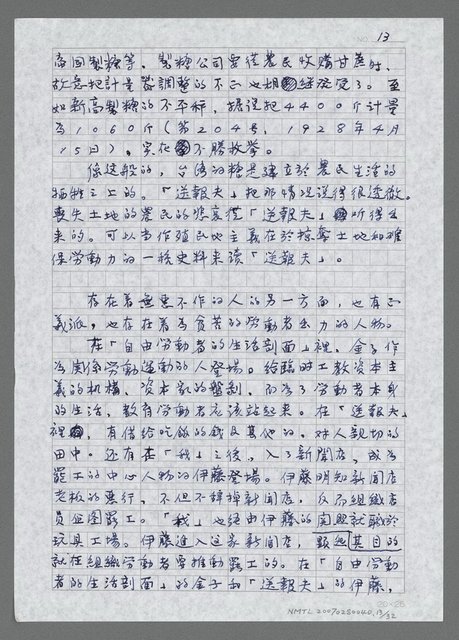 NO. 13
帝国製糖等，製糖公司里從農民收購甘蔗时，
故意把計量器調整的不正也相继發覺了。至
如新高製糖的不平秤，據说把4400斤計量
為1060斤（第204号，1928年4月
15日），实在不勝枚举。
像這般的，台湾的糖是建立於農民生活的
牺牲之上的。「送報夫」把那情况说得很透徹。
喪失土地的農民的悲哀從「送報夫」听得出
来的。可以当作殖民地主義在於掠奪土地和確
保劳動力的一種史料来读「送報夫」。
存在着無恶不作的人的另一方面，也有正
義派，也存在着為貧苦的劳動者出力的人物。
在「自由劳動者的生活剖面」裡，金子作
為関係劳動運動的人登場。给臨時工教資本主
義的机構、資本家的盤剝，而為了劳動者本身
的生活，教有劳動者应该站起来。在「送報夫」
裡，有借给吃飯的錢及其他的，对人親切的
田中。还有在「我」之後，入了新聞店，成為
罷工的中心人物的伊藤登場。伊藤明知新聞店
老板的惡行，不但不辞掉新聞店，反而組織店
員企图罷工。「我」也经由伊藤的関照就職於
玩具工場。伊藤進入这家新聞店，顯然其目的
就在組織劳動者掌推動罷工的。在「自由劳動
者的生活剖面」的金子和「送報夫」的伊藤，
20×25
NMTL 20070280040, 13/32